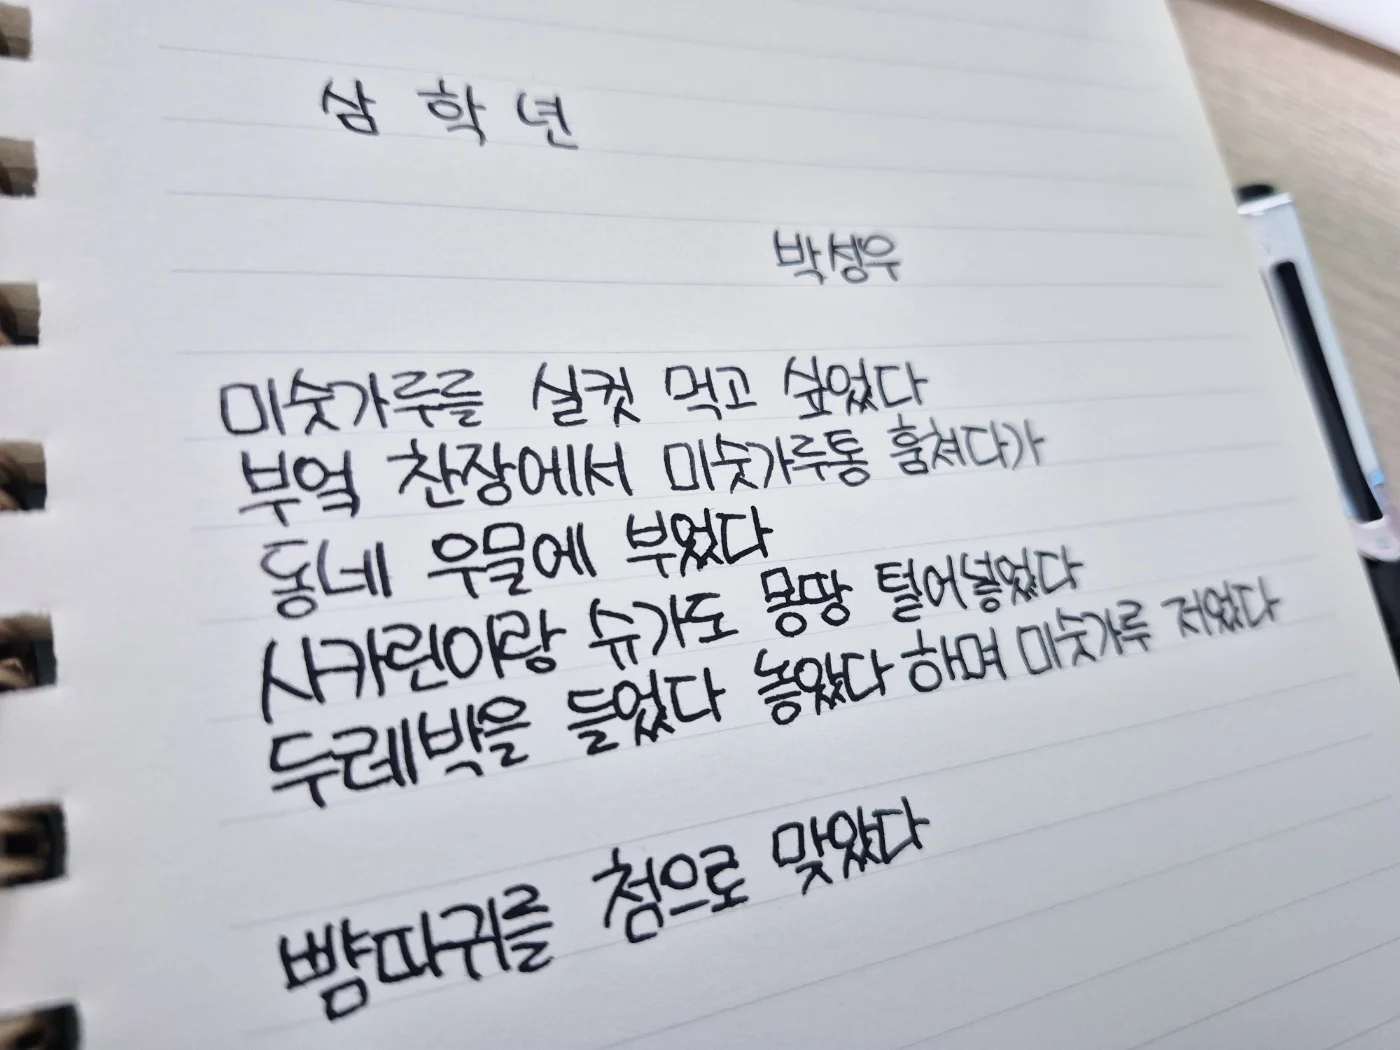 삼학년
박성우
미숫가루를 실컷 먹고 싶었다
부엌 찬장에서 미숫가루통 훔쳐다가
동네 우물에 부었다
사카린이랑 슈가도 몽땅 털어넣었다
두레박을 들었다 놓았다 하며 미숫가루 저었다
뺨따귀를 첨으로 맞았다